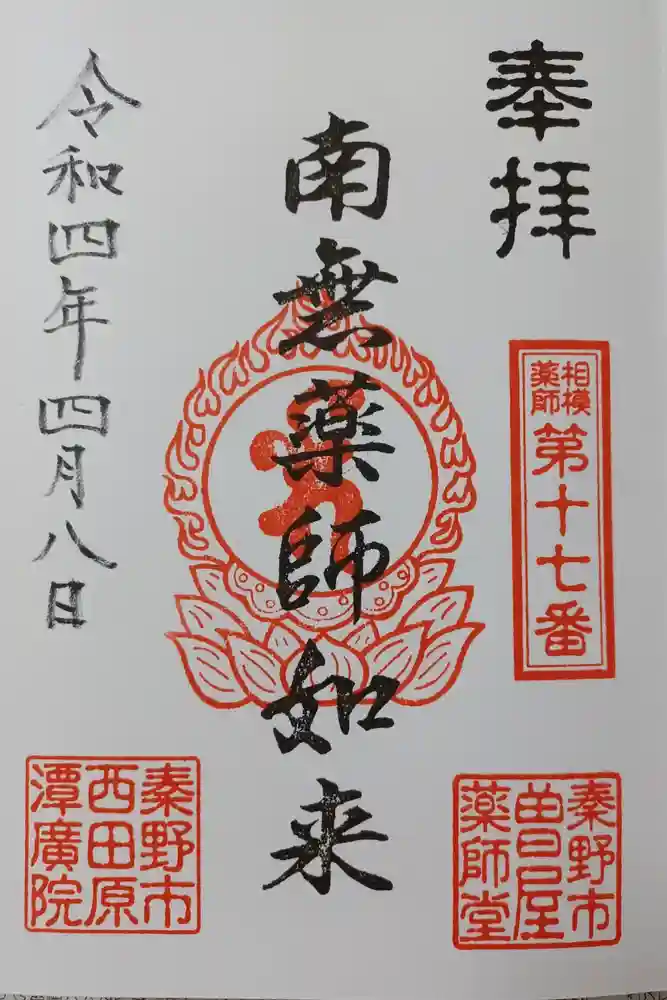 奉拝
相模
薬師
第十七番
秦野市
曽屋
薬師堂
南無薬師如来
令和四年四月八日
秦野市
西田原
潭廣院